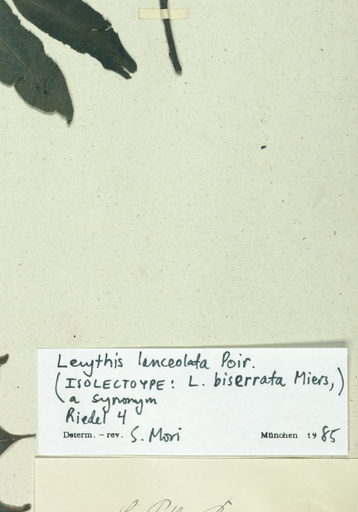 Lecythis lanceolata Poir.
(ISOLECTOYPE: L. biserrata Miers,)
a synonym
Riedel 4
Determ. – rev. S. Mori München 1985